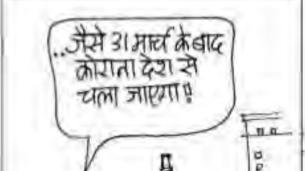 ..जैसे 31 मार्च के बाद
कोराना देश से
चला जाएगा!!